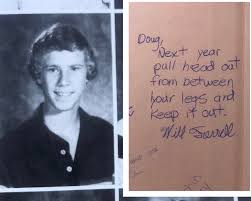 Doug,
Next year
pull head out
from between
your legs and
keep it out.
Will Ferrell